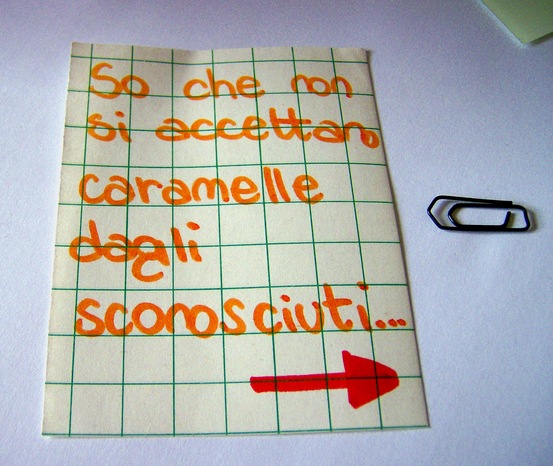 So che non
si accettano
caramelle
dagli
sconosciuti...